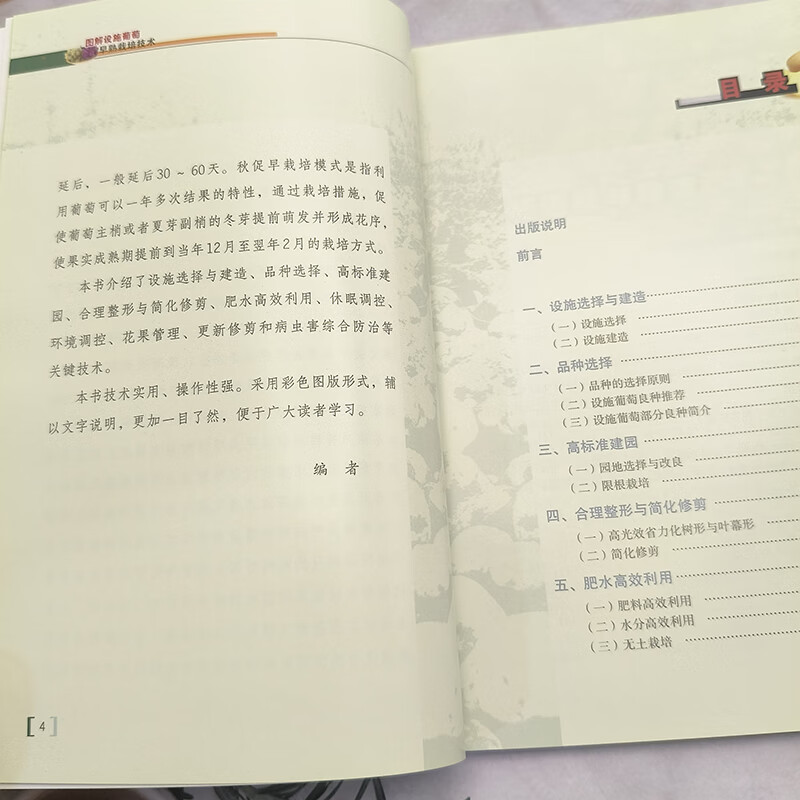 图解设施葡萄
早熟栽培技术
延后、一般延后30～60天。秋促早栽培模式是指利
用葡萄可以一年多次结果的特性，通过栽培措施，促
使葡萄主梢或者夏芽副梢的冬芽提前萌发并形成花序，
使果实成熟期提前到当年12月至翌年2月的栽培方式。
本书介绍了设施选择与建造、品种选择、高标准建
园、合理整形与简化修剪、肥水高效利用、休眠调控、
环境调控、花果管理、更新修剪和病虫害综合防治等
关键技术。
本书技术实用、操作性强。采用彩色图版形式，辅
以文字说明，更加一目了然，便于广大读者学习。
编 者
[ 4 ]
目 录
出版说明
前言
一、设施选择与建造
（一）设施选择
（二）设施建造
二、品种选择
（一）品种的选择原则
（二）设施葡萄良种推荐
（三）设施葡萄部分良种简介
三、高标准建园
（一）园地选择与改良
（二）限根栽培
四、合理整形与简化修剪
（一）高光效省力化树形与叶幕形
（二）简化修剪
五、肥水高效利用
（一）肥料高效利用
（二）水分高效利用
（三）无土栽培